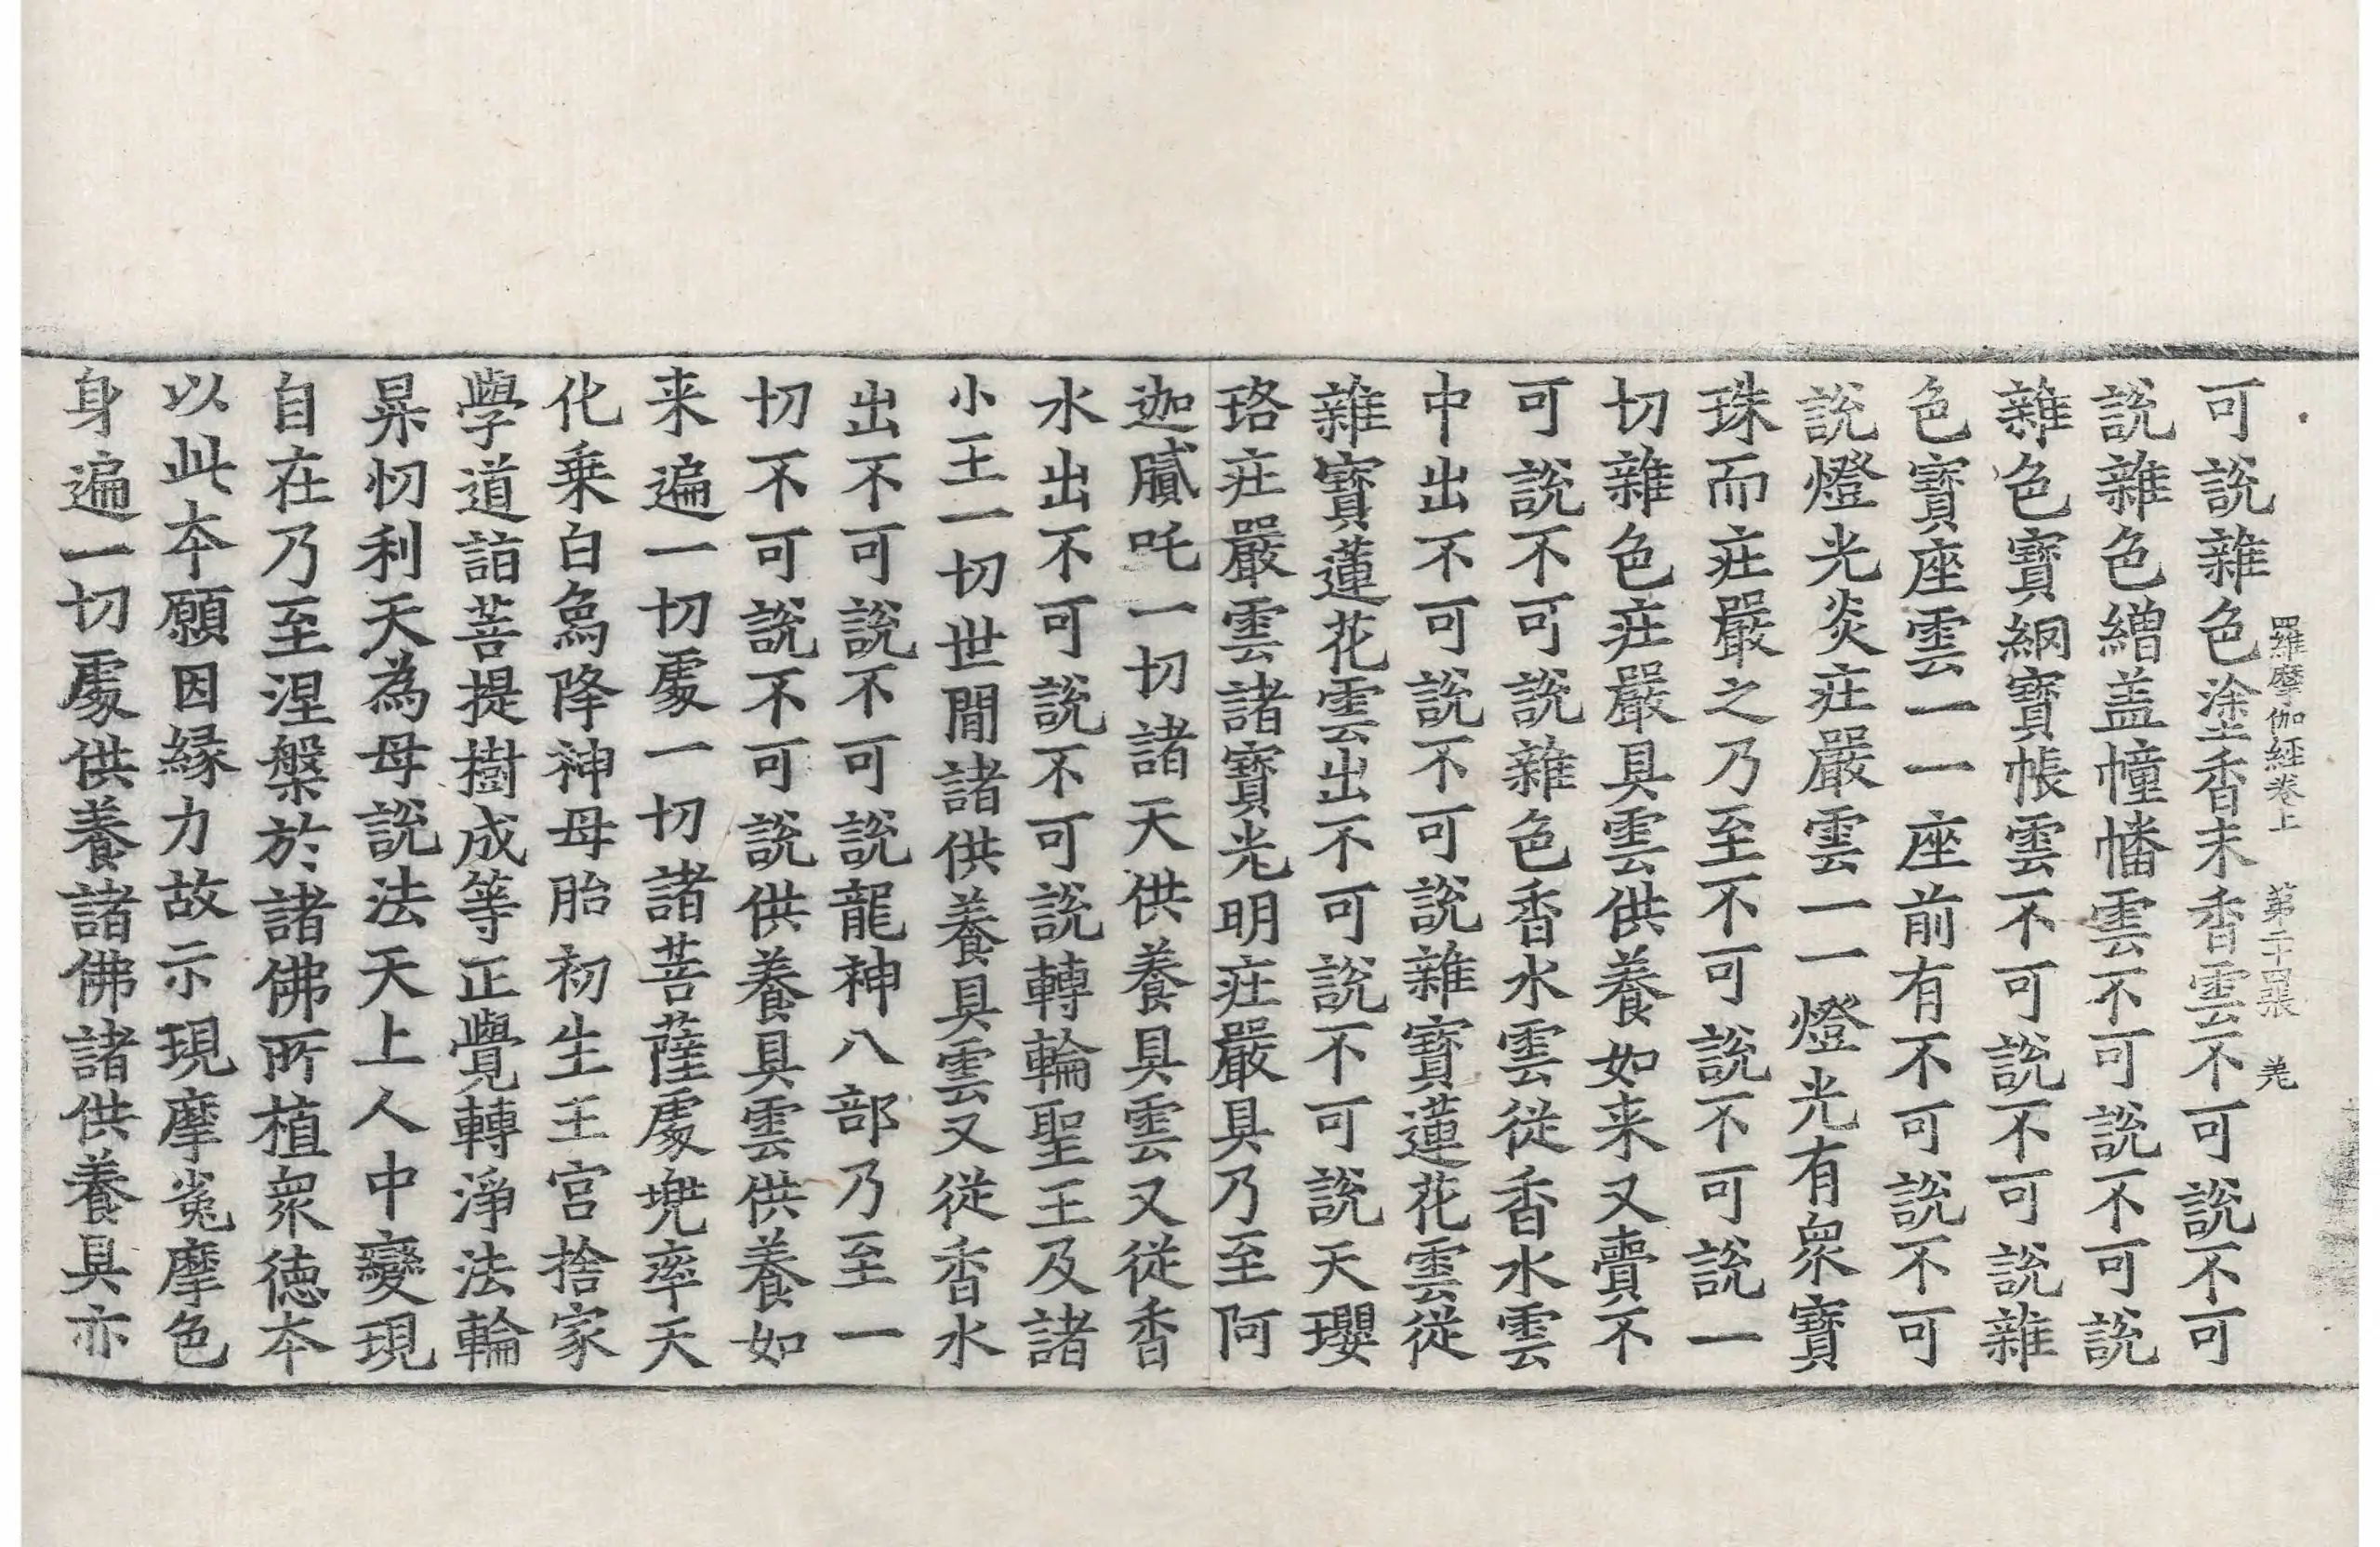 羅摩伽經卷上　第二十四張　羌
可說雜色塗香末香雲不可說不可
說雜色繒盖幢幡雲不可說不可說
雜色寶網寶帳雲不可說不可說雜
色寶座雲一一座前有不可說不可
說燈光炎莊嚴雲一一燈光有衆寶
珠而莊嚴之乃至不可說不可說一
切雜色莊嚴具雲供養如来又賷不
可說不可說雜色香水雲從香水雲
中出不可說不可說雜寶蓮花雲從
雜寶蓮花雲出不可說不可說天瓔
珞莊嚴雲諸寶光明莊嚴具乃至阿
迦膩吒一切諸天供養具雲又從香
水出不可說不可說轉輪聖王及諸
小王一切世間諸供養具雲又從香水
出不可說不可說龍神八部乃至一
切不可說不可說供養具雲供養如
来遍一切處一切諸菩薩處兠率天
化乗白鳥降神母胎初生王宫捨家
學道詣菩提樹成等正覺轉淨法輪
昇忉利天為母說法天上人中變現
自在乃至涅槃於諸佛所植衆德本
以此本願因縁力故示現摩㝹摩色
身遍一切處供養諸佛諸供養具亦